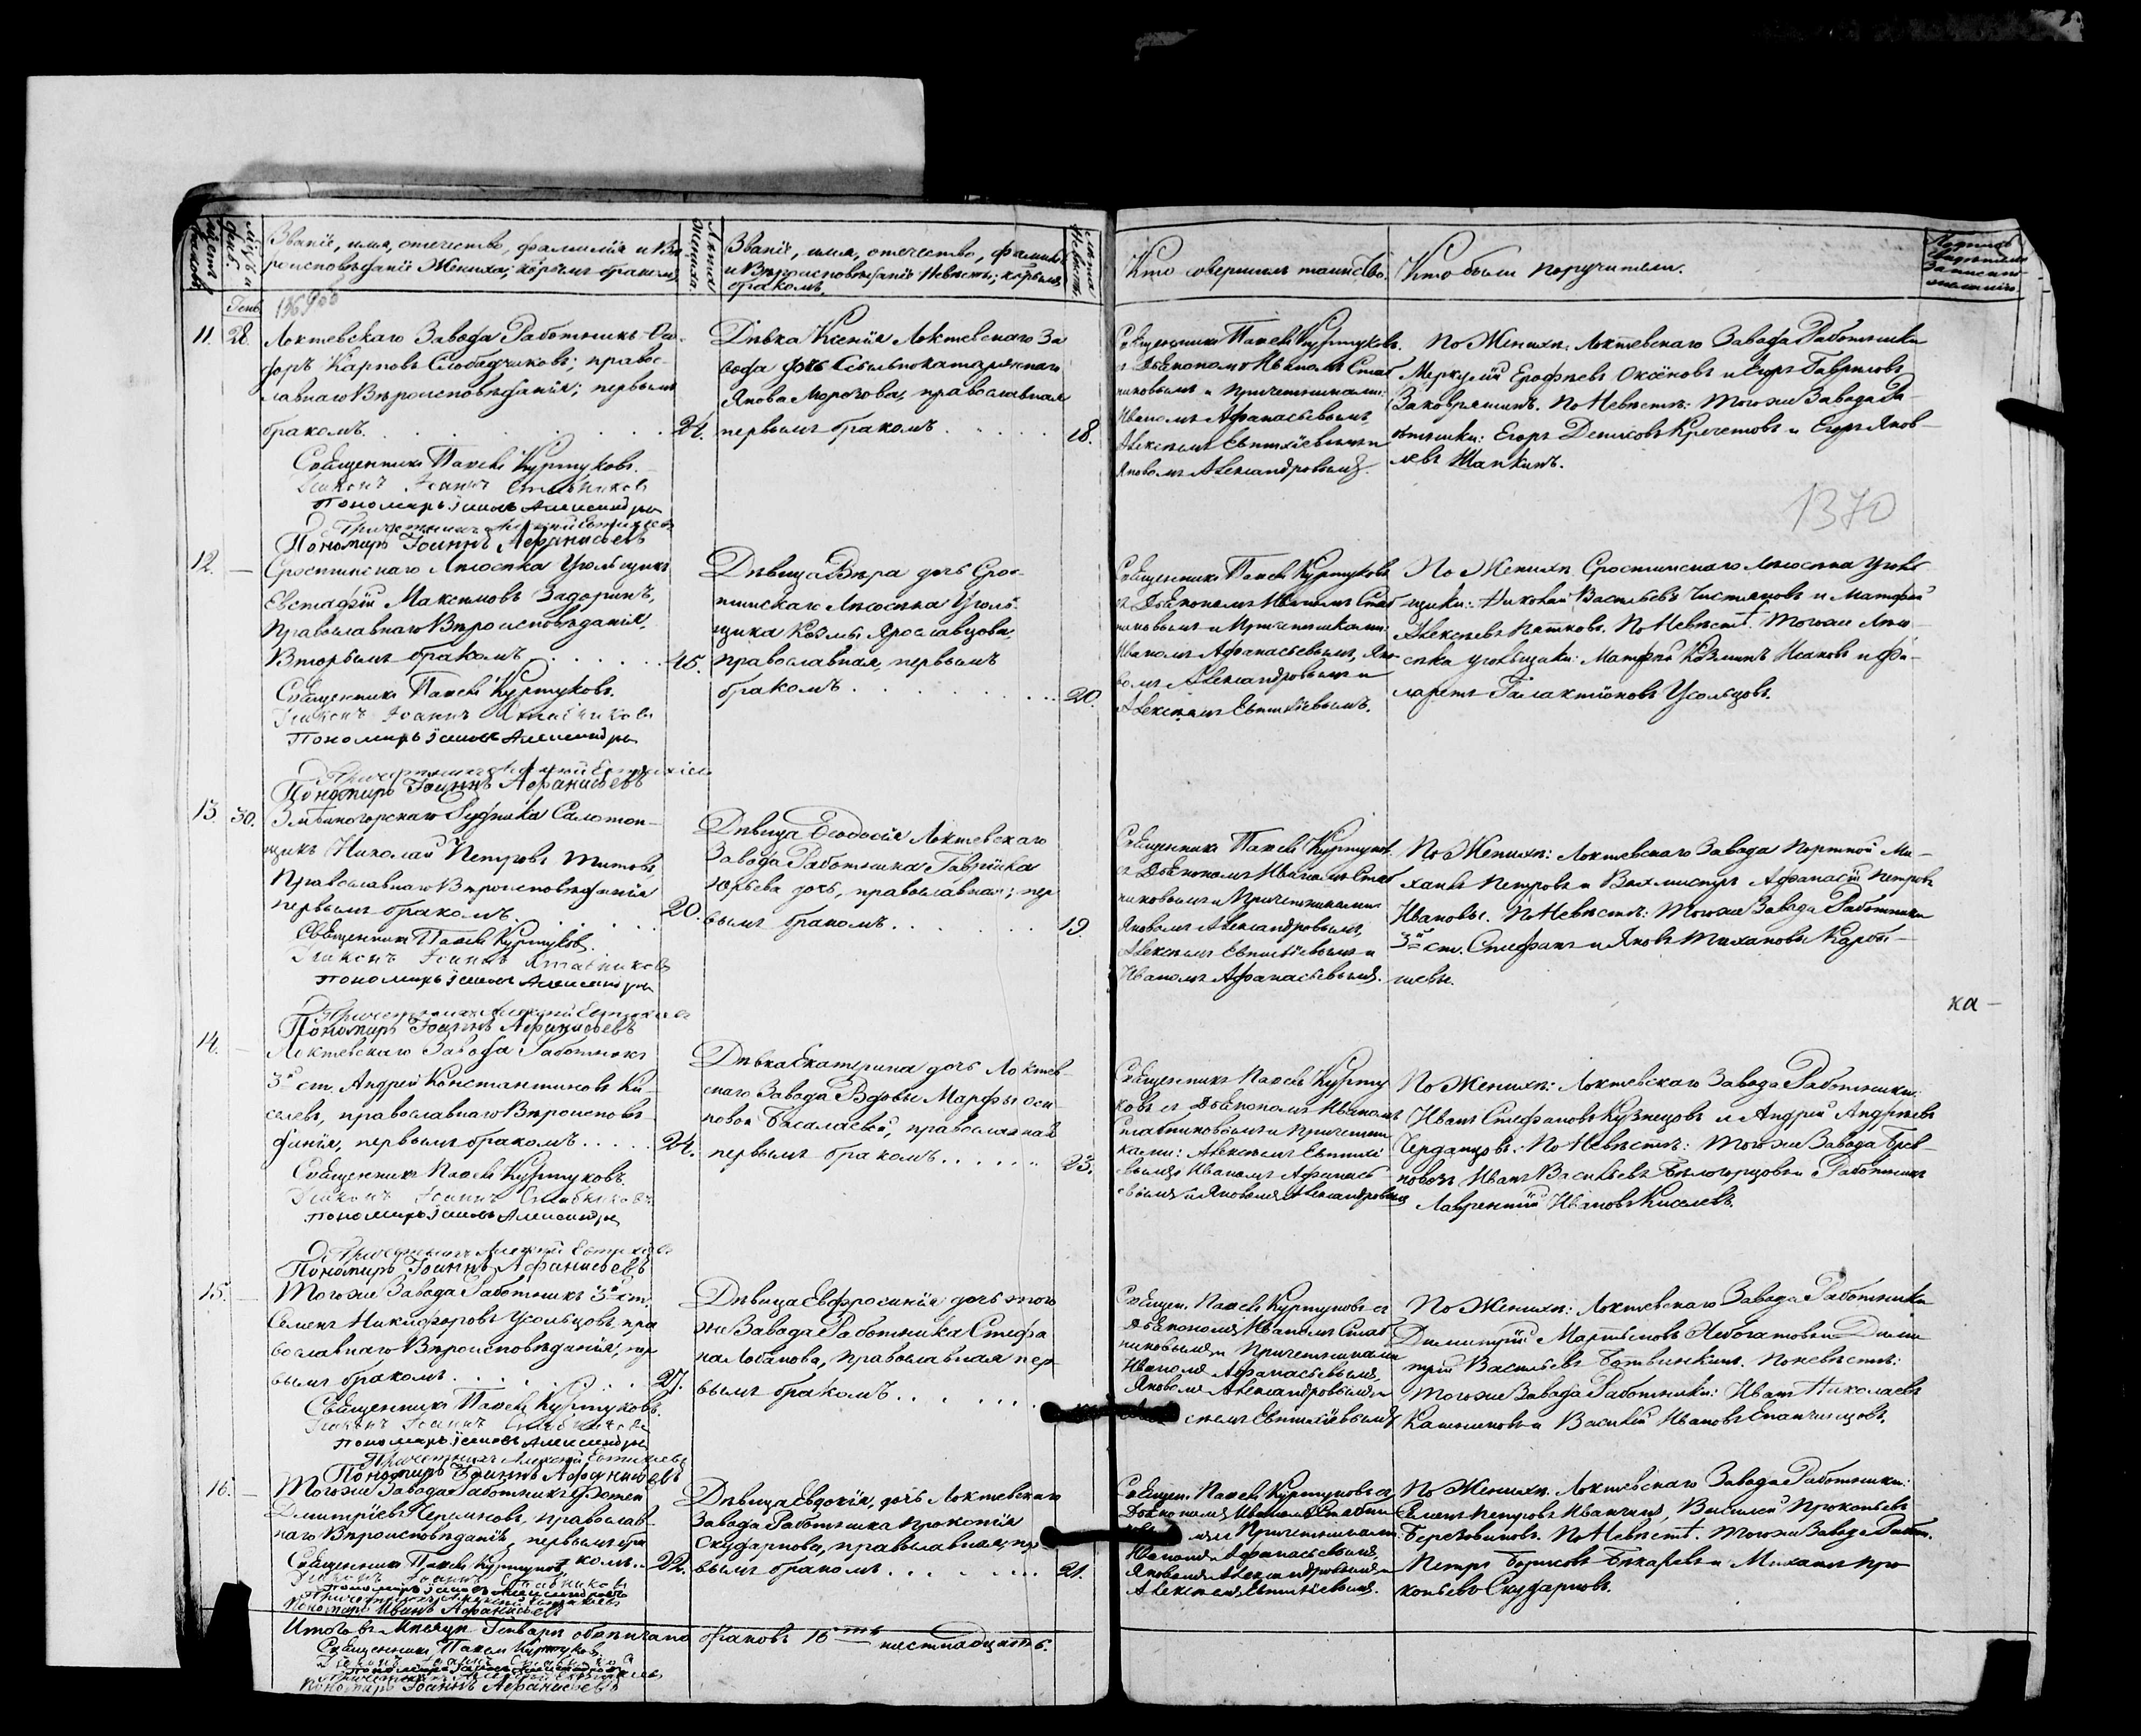 Званіе, имя, отечество, фамилія и Вѣ
роисповѣданіе Жениха; которымъ бракомъ
Лѣта Жениха.
Званіе, имя, отечество, фамилія
и Вѣроисповѣданіе Невѣсты; которымъ
бракомъ.
Лѣта Невѣсты.
Кто совершилъ таинство.
Кто были поручители.
Генв.
11. 28. Локтевскаго Завода Работникъ
Карповъ Слободчиковъ; право-
славнаго Вѣроисповѣданія; первымъ
бракомъ 24.
Священникъ Павелъ Куртуковъ.
Діаконъ Іоаннъ Стабниковъ
Пономарь Іаковъ Александровъ
Причетникъ Алексѣй Евтихіевъ
Пономарь Іоаннъ Афанасьевъ
Дѣвка Ксенія Локтевскаго За
вода дочь Ссыльнокаторжнаго
Якова Морозова, православная
первымъ бракомъ 18.
Священникъ Павелъ Куртуковъ
съ Діакономъ Иваномъ Стаб
никовымъ и Причетниками:
Иваномъ Афанасьевымъ,
Алексѣемъ Евтихіевымъ и
Яковомъ Александровымъ.
По Женихѣ: Локтевскаго Завода Работники
Меркулій Ерофѣевъ Оксёновъ и Егоръ Гавриловъ
Заковряшинъ. По Невѣстѣ: Тогоже Завода Ра-
ботники: Егоръ Денисовъ Кречетовъ и Егоръ Яков-
левъ Шапкинъ.
1370
12. — Сростинскаго Лѣсосѣка Угольщикъ
Евстафій Максимовъ Задоринъ,
Православнаго Вѣроисповѣданія,
Вторымъ бракомъ 45.
Священникъ Павелъ Куртуковъ.
Діаконъ Іоаннъ Стабниковъ
Пономарь Іаковъ Александровъ
Причетникъ Алексѣй Евтихіевъ
Пономарь Іоаннъ Афанасьевъ
Дѣвица Вѣра дочь Срос-
тинскаго Лѣсосѣка Уголь-
щика Козмы Ярославцова,
православная, первымъ
бракомъ 20.
Священникъ Павелъ Куртуковъ
съ Діакономъ Иваномъ Стаб
никовымъ и Причетниками:
Иваномъ Афанасьевымъ, Яко-
вомъ Александровымъ и
Алексѣемъ Евтихіевымъ.
По Женихѣ Сростинскаго Лѣсосѣка Уголь
щики: Николай Васильевъ Чистяцовъ и Матфей
Алексѣевъ Пятковъ. По Невѣстѣ. Тогоже Лѣсо-
сѣка угольщики: Матфей Козминъ Исаковъ и Фи-
ларетъ Галактіоновъ Усольцовъ.
13. 30. Змѣиногорскаго Рудника Салотоп-
щикъ Николай Петровъ Титовъ,
Православнаго Вѣроисповѣданія
первымъ бракомъ. 20.
Священникъ Павелъ Куртуковъ.
Діаконъ Іоаннъ Стабниковъ
Пономарь Іаковъ Александровъ
Причетникъ Алексѣй Евтихіевъ
Пономарь Іоаннъ Афанасьевъ
Дѣвица Ѳеодосія Локтевскаго
Завода Работника Гаврила
Юрьева дочь, православная; пер
вымъ бракомъ. 19.
Священникъ Павелъ Куртуков.
съ Діакономъ Иваномъ Стаб
никовымъ и Причетниками
Яковомъ Александровымъ,
Алексѣемъ Евтихіевымъ и
Иваномъ Афанасьевымъ.
По Женихѣ: Локтевскаго Завода Портной Ми-
хаилъ Петровъ и Вахмистръ Афанасій Петровъ
Ивановы. По Невѣстѣ: Тогоже Завода Работники
3й ст. Стефанъ и Яковъ Тихановы Карбы-
шевы.
ка —
14. — Локтевскаго Завода Работникъ
3й ст. Андрей Константиновъ Ки-
селевъ, православнаго Вѣроисповѣ
данія, первымъ бракомъ 24.
Священникъ Павелъ Куртуковъ.
Діаконъ Іоаннъ Стабниковъ
Пономарь Іаковъ Александровъ
Причетникъ Алексѣй Евтихіевъ
Пономарь Іоаннъ Афанасьевъ
Дѣвка Екатерина дочь Локтев-
скаго Завода Вдовы Марфы Оси-
повой Басалаевой, православная
первымъ бракомъ 23.
Священникъ Павелъ Курту
ковъ съ Діакономъ Иваномъ
Стабниковымъ и Причетни
ками: Алексѣемъ Евтихі
евымъ Иваномъ Афанась
евымъ и Яковомъ Александровымъ
По Женихѣ: Локтевскаго Завода Работники:
Иванъ Стефановъ Кузнецовъ и Андрей Андреевъ
Черданцовъ. По Невѣстѣ: Тогоже Завода Брев-
новозъ Иванъ Васильевъ Бѣлогорцовъ и Работникъ
Лаврентій Ивановъ Киселевъ.
15. — Тогоже Завода Работникъ 3й ст.
Семенъ Никифоровъ Усольцовъ, пра
вославнаго Вѣроисповѣданія, пер
вымъ бракомъ 27.
Священникъ Павелъ Куртуковъ.
Діаконъ Іоаннъ Стабниковъ
Пономарь Іаковъ Александровъ
Причетникъ Алексѣй Евтихіевъ
Пономарь Іоаннъ Афанасьевъ
Дѣвица Евфросинія дочь того
же Завода Работника Стефа
на Лобанова, православная пер
вымъ бракомъ
Священ. Павелъ Куртуковъ съ
Діакономъ Иваномъ Стаб
никовымъ и Причетниками
Иваномъ Афанасьевымъ,
Яковомъ Александровымъ и
сѣемъ Евтихіевымъ
По Женихѣ: Локтевскаго Завода Работники
Димитрій Мартемовъ Небогатовъ и Дими
трій Васильевъ Ботвинкинъ. По невѣстѣ:
Тогоже Завода Работники: Иванъ Николаевъ
Калашниковъ и Василій Ивановъ Епанчинцовъ.
16. — Тогоже Завода Работникъ
Дмитріевъ православ-
наго Вѣроисповѣданія, первымъ бра
комъ 22.
Священникъ Павелъ Куртуковъ
Діаконъ Іоаннъ Стабниковъ
Пономарь Іаковъ Александровъ
Причетникъ Алексѣй Евтихіевъ
Пономарь Иванъ Афанасьевъ
Дѣвица Евдокія, дочь Локтевскаго
Завода Работника Прокопія
Скударнова, православная, пер
вымъ бракомъ 21.
Священ. Павелъ Куртуковъ съ
Діакономъ Иваномъ Стабни
Причетниками
Иваномъ Афанасьевымъ,
Яковомъ Александровымъ и
Алексѣемъ Евтихіевымъ.
По Женихѣ. Локтевскаго Завода Работники:
Семенъ Петровъ Иванчинъ, Василій Прокопьевъ
Березовиковъ. По Невѣстѣ. Тогоже Завода Работ.
Петръ Борисовъ Бекаревъ и Михаилъ Про
копьевъ Скударновъ.
Итого въ Мѣсяцѣ Генварѣ обвѣнчано браковъ 16ть шестнадцать.
Священникъ Павелъ Куртуковъ
Діаконъ Іоаннъ Стабниковъ
Пономарь Іаковъ Александровъ
Причетникъ Алексѣй Евтихіевъ
Пономарь Іоаннъ Афанасьевъ